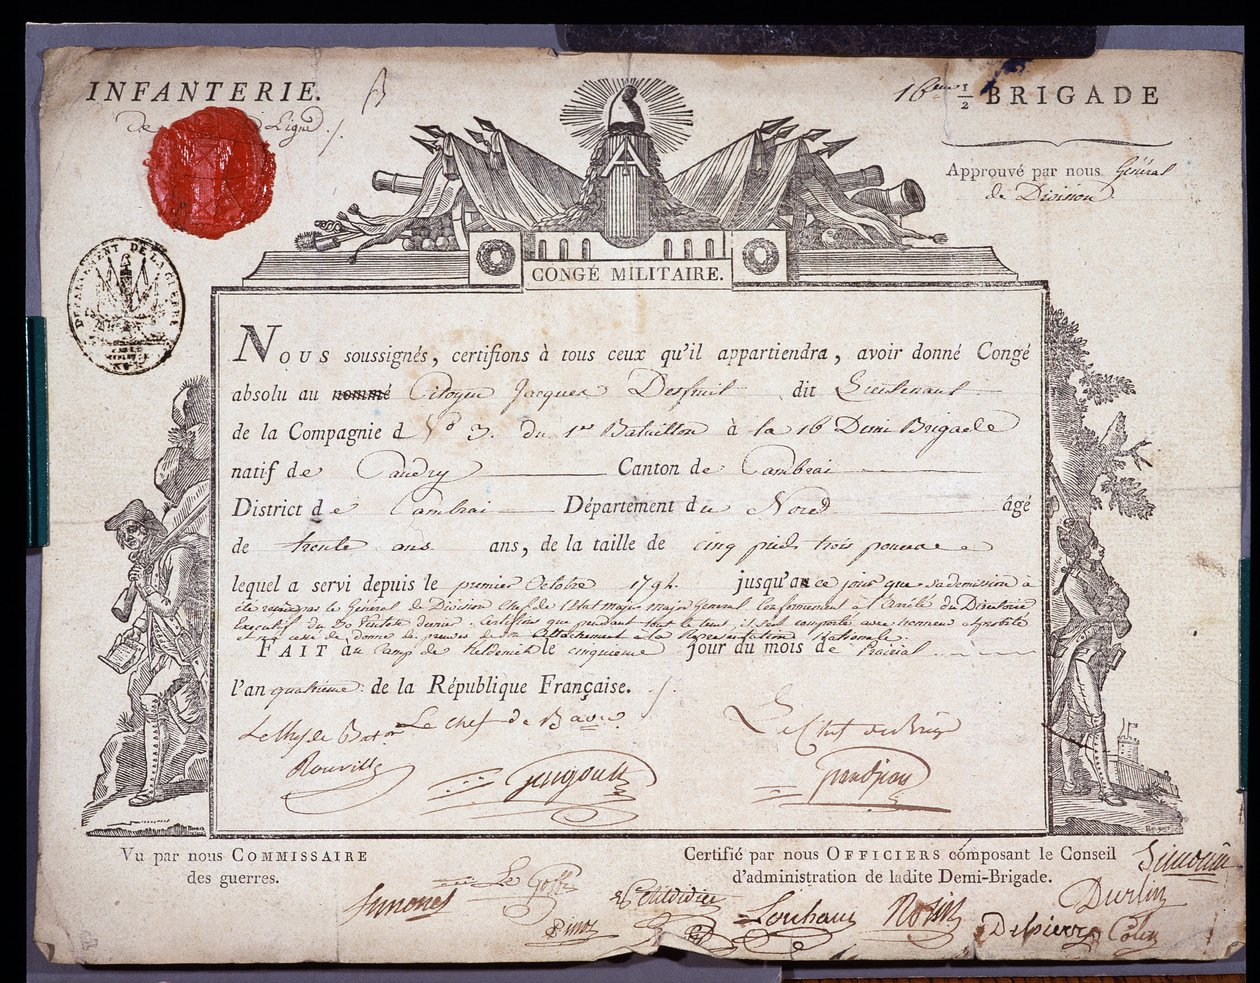 INFANTERIE.
de Ligne
16eme 1/2 BRIGADE
Approuvé par nous Général
de Division
DÉPARTEMENT DE LA GUERRE
CONGÉ MILITAIRE.
Nous soussignés, certifions à tous ceux qu'il appartiendra, avoir donné Congé
absolu au nommé Citoyen Jacques Desfruit dit Lieutenant
de la Compagnie d N° 3. du 1er Bataillon à la 16 Demi Brigade
natif de Caudry Canton de Cambrai
District de Cambrai Département du Nord âgé
de trente ans ans, de la taille de cinq pieds trois pouces
lequel a servi depuis le premier Octobre 1792. jusqu'a ce jour que sa demission a
été par le Général de Division Chef de l'Etat major Général Conformement à l'Arrêté du Directoire
Executif du 30 dernier. Certifions que pendant tout le tems il s'est comporté avec honneur et probité
et n'a cessé de donner de preuves de son attachement à la Représentation Nationale.
FAIT au Camp de le cinquieme jour du mois de Prairial
l'an quatrieme de la République Française.
Le Chef de Baton Le Chef de Le Chef de Brig
Rouville
Vu par nous COMMISSAIRE
des guerres.
Certifié par nous OFFICIERS composant le Conseil
d'administration de ladite Demi-Brigade.
Simonet Petitdidier Durlin
Pinot Louhaut Delpierre Colin